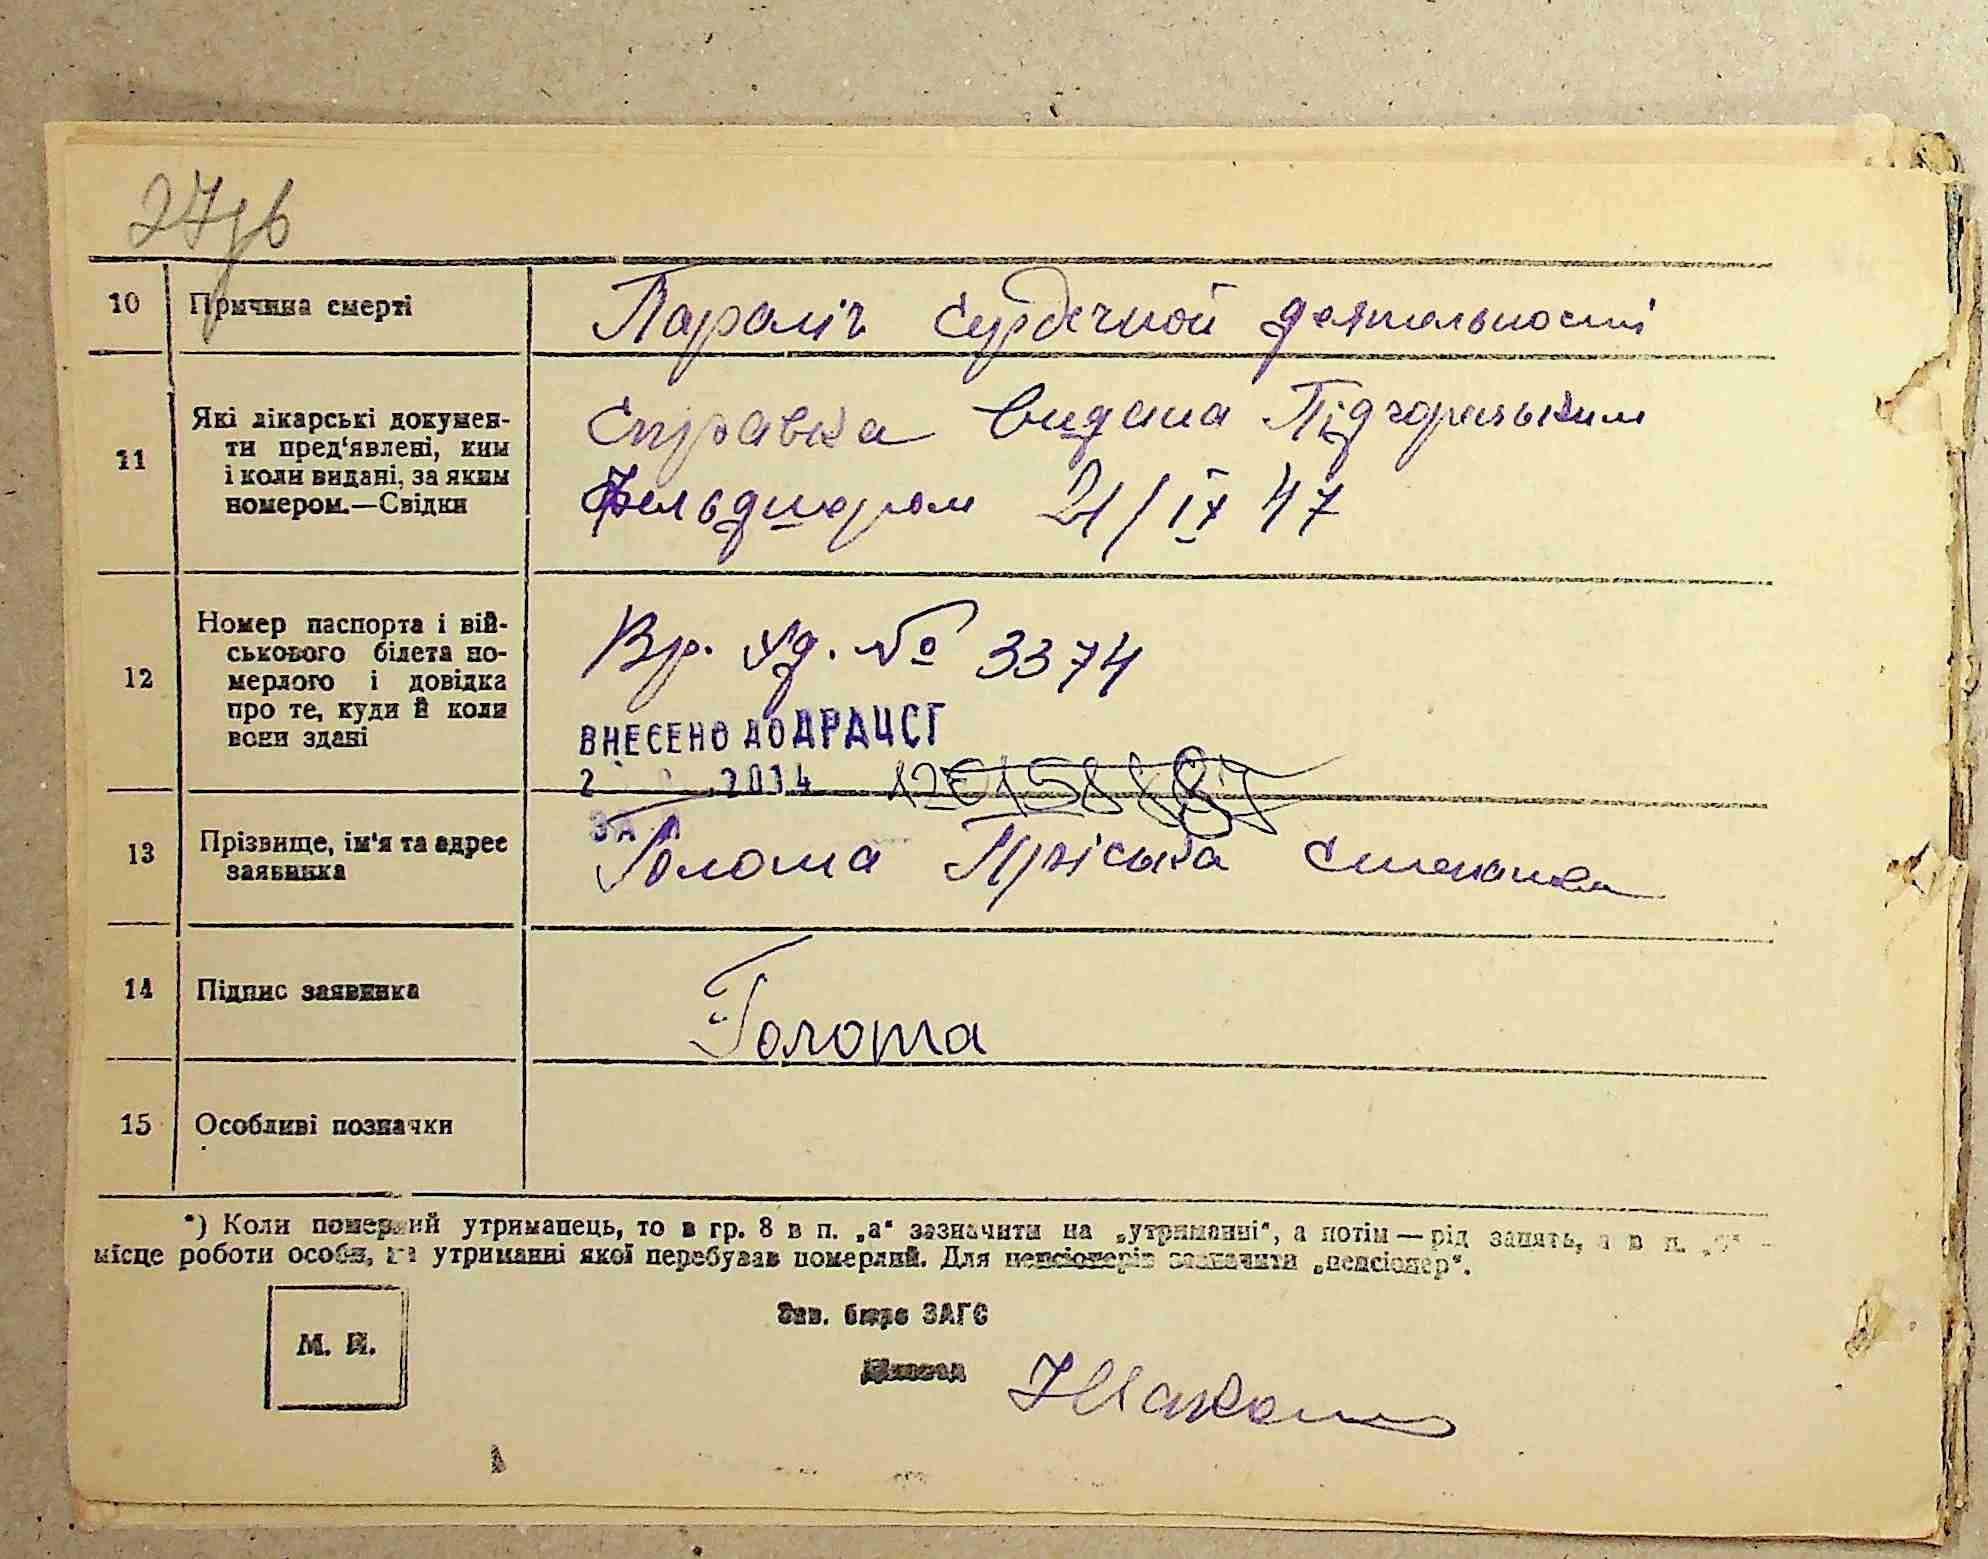 27зв
10 Причина смерті Параліч сердечной деятельності
11 Які лікарські докумен-
ти пред'явлені, ким
і коли видані, за яким
номером.—Свідки
Справка видана Підгорським
Фельдшером 21/IX 47
12 Номер паспорта і вій-
ськового білета по-
мерлого і довідка
про те, куди й коли
вони здані
Вр. уд. № 3374
ВНЕСЕНО ДО ДРАЦСГ
2 2014
ЗА
13 Прізвище, ім'я та адрес
заявника
Голота Пріська
14 Підпис заявника Голота
15 Особливі позначки
*) Коли померлий утриманець, то в гр. 8 в п. „а" зазначити на „утриманні", а потім — рід занять, а в п.
місце роботи особи, на утриманні якої перебував померлий. Для пенсіонерів зазначити „пенсіонер".
М. П.
Зав. бюро ЗАГС